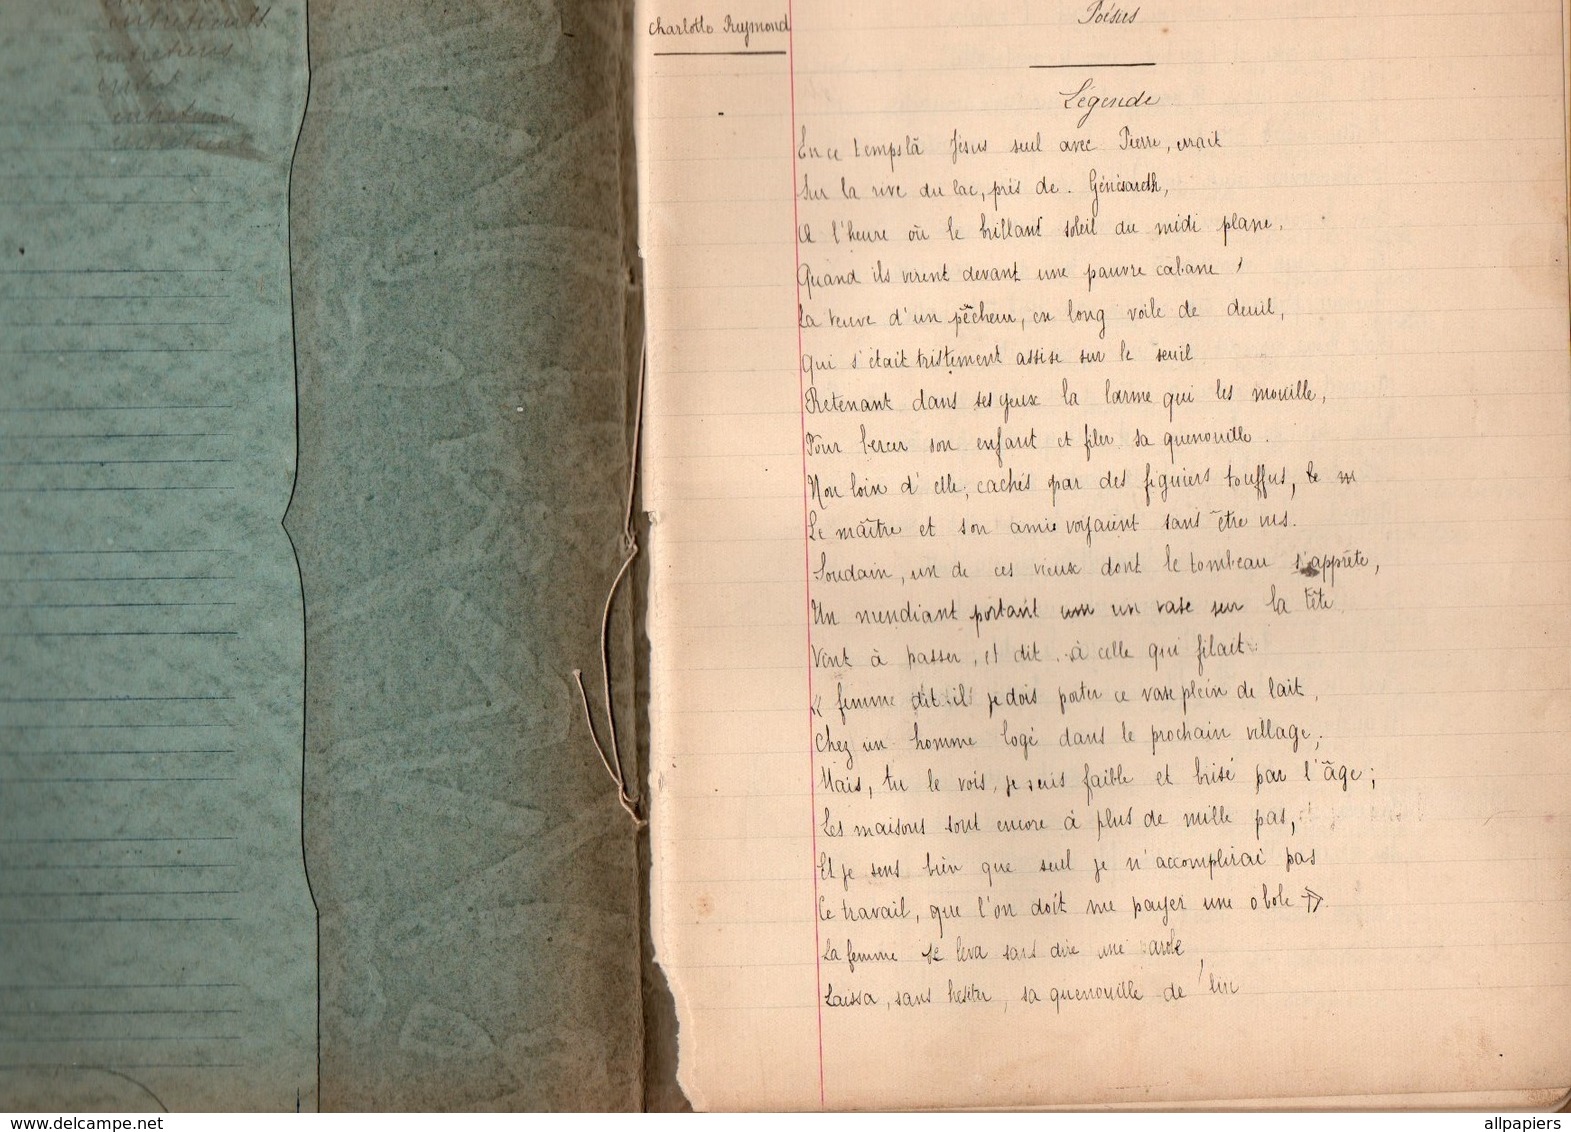 entretiens
entretiens
Charlotte Reymond
Poésies
Légende
En ce temps là Jésus seul avec Pierre, errait
Sur la rive du lac, près de . Génésareth,
A l'heure où le brillant soleil du midi plane,
Quand ils virent devant une pauvre cabane,
La veuve d'un pêcheur, en long voile de deuil,
Qui s'était tristement assise sur le seuil
Retenant dans ses yeux la larme qui les mouille,
Pour bercer son enfant et filer sa quenouille.
Non loin d'elle, cachés par des figuiers touffus, le m
Le maître et son amie voyaient sans être vus.
Soudain, un de ces vieux dont le tombeau s'apprête,
Un mendiant portant un vase sur la tête
Vint à passer, et dit, à celle qui filait:
« femme dit-il je dois porter ce vase plein de lait,
Chez un homme logé dans le prochain village;
Mais, tu le vois, je suis faible et brisé par l'âge;
Les maisons sont encore à plus de mille pas,
Et je sens bien que seul je n'accomplirai pas
Ce travail, que l'on doit me payer une obole ».
La femme se leva sans dire une parole,
Laissa, sans hesiter, sa quenouille de lin
www.delcampe.net
allpapiers